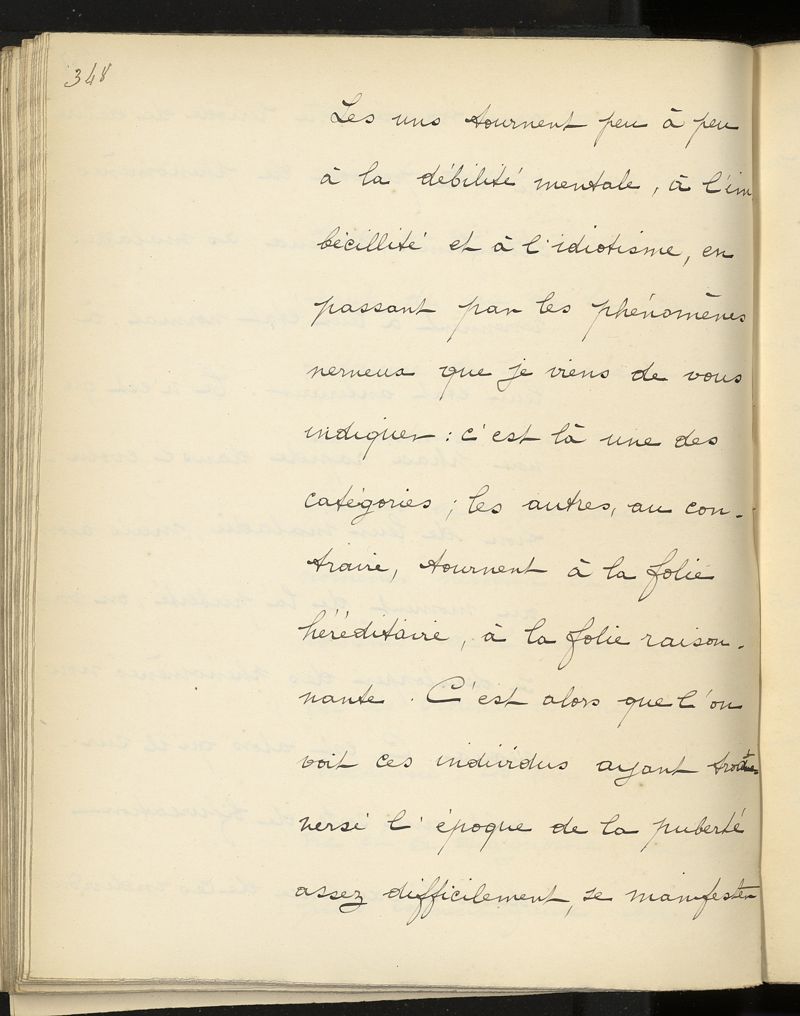 348
Les uns tournent peu à peu
à la débilité mentale, à l'im
bécillité et à l'idiotisme, en
passant par les phénomènes
nerveux que je viens de vous
indiquer : c'est là une des
catégories ; les autres, au con-
traire, tournent à la folie
héréditaire, à la folie raison-
nante. C'est alors que l'on
voit ces individus ayant
versé l'époque de la puberté
assez difficilement, se manifester